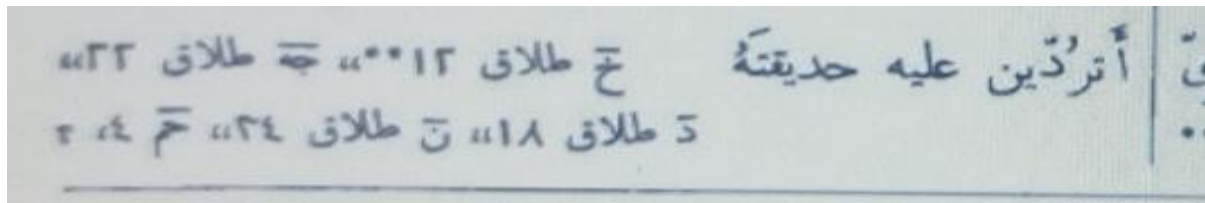 أتردّين عليه حديقتَهُ خ طلاق ١٢**،، جه طلاق ٢٢،،
د طلاق ١٨،، ن طلاق ٣٤،، حم ٤،